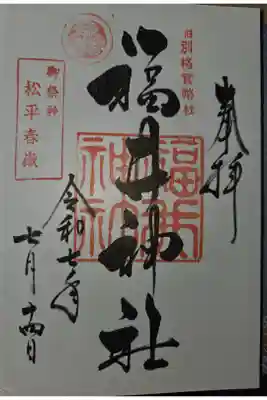 奉拝
旧別格官幣社
福井神社
福井神社
御祭神
松平春嶽
令和七年
七月十四日